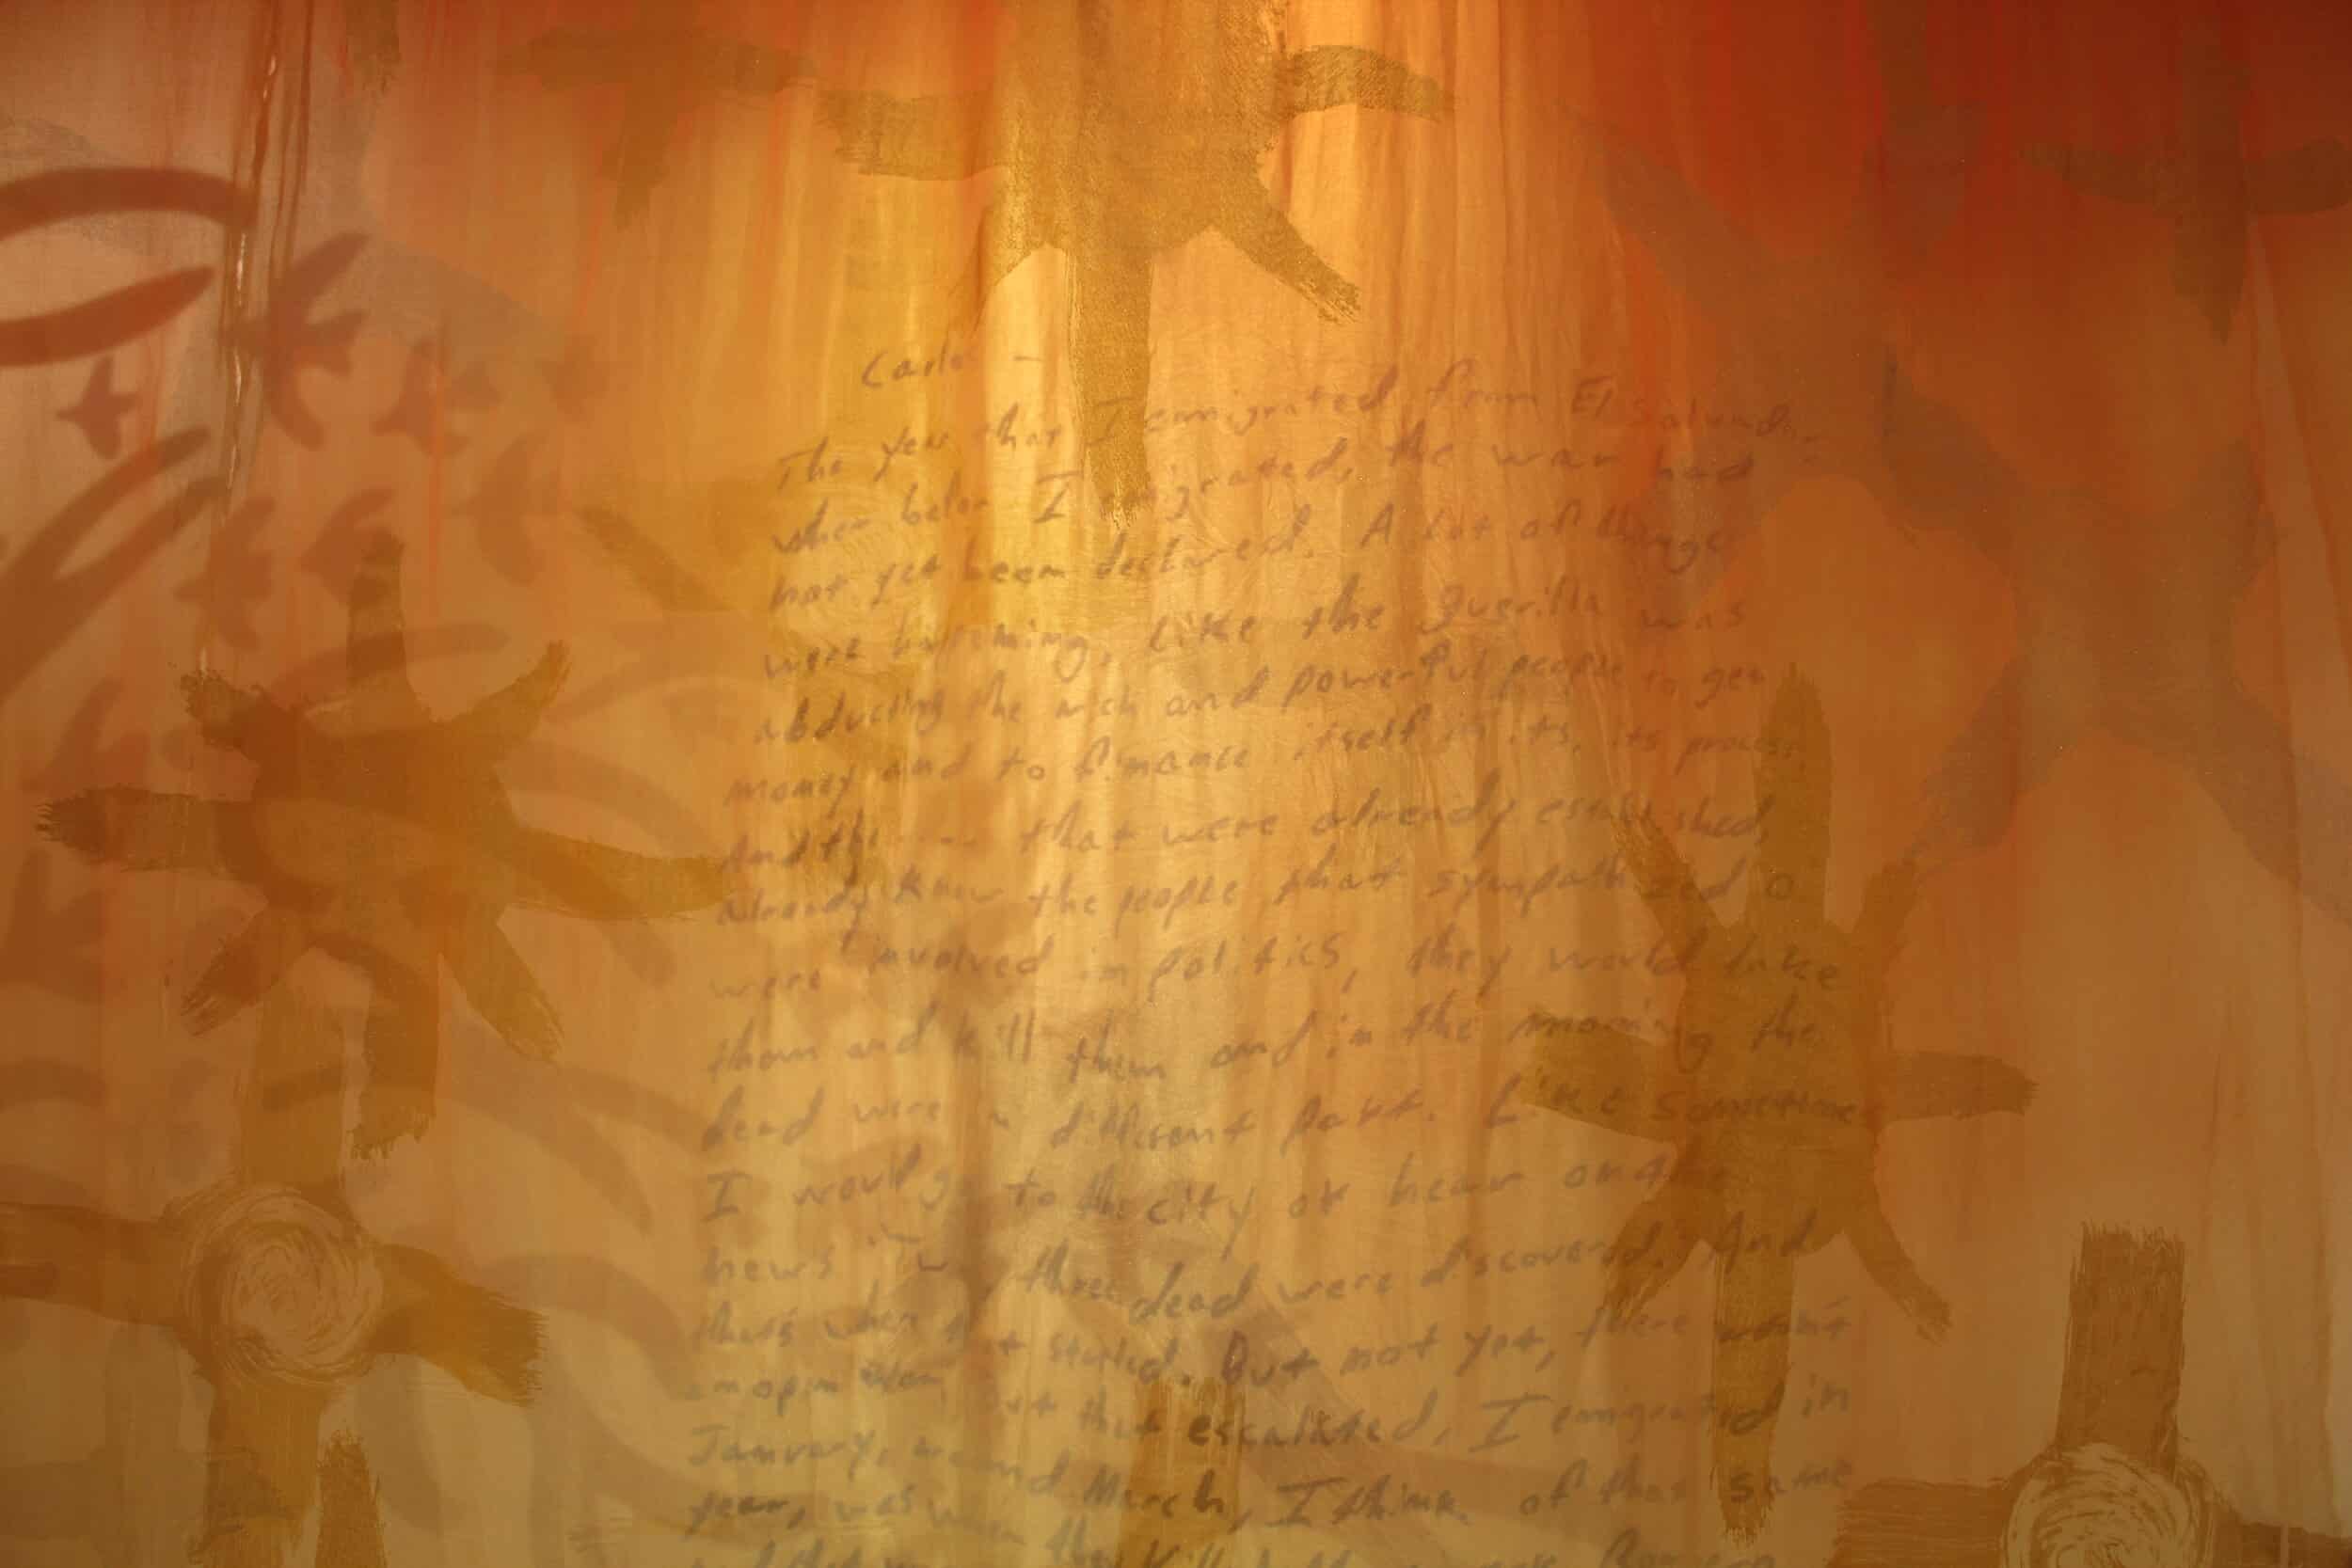 Carlos -
The year that I emigrated from El Salvador
when I emigrated, the war had
not yet been declared. A lot of things
were happening, like the guerilla was
abducting the rich and powerful people to get
money and to finance itself in its, its process,
And that were already established,
already knew the people that sympathized o
were involved in politics, they would take
them and kill them and in the morning the
dead were in different part. Like sometimes
I would go to the city or hear on the
news "Two, three dead were discovered." And
that's when that started. But not yet, there wasn't
an open war, but that escalated, I emigrated in
January, and March, I think, of that same
year, was when they killed Romero